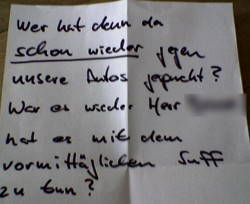 Wer hat denn da
schon wieder gegen
unsere Autos gepisst?
War es wieder Herr
hat es mit dem
vormittäglichen Suff
zu tun?